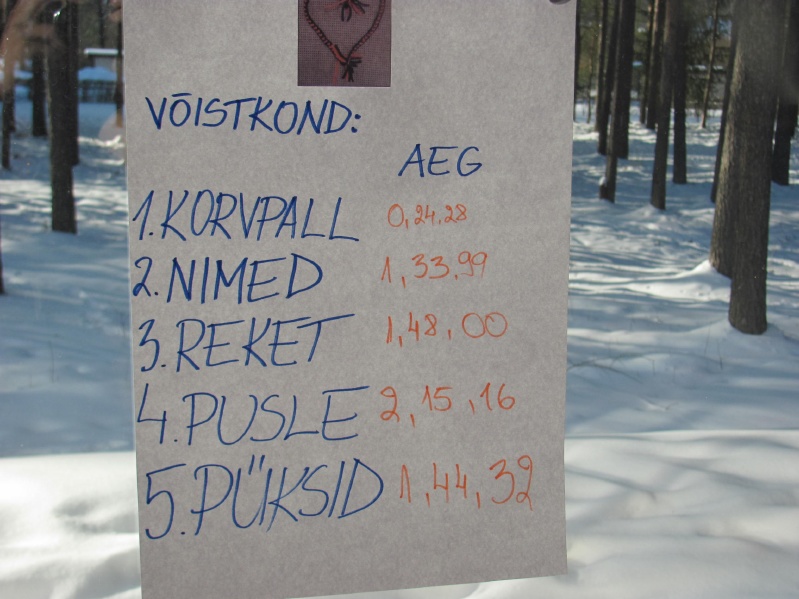 VÕISTKOND:
AEG
1. KORVPALL 0,24,28
2. NIMED 1,33,99
3. REKET 1,48,00
4. PUSLE 2,15,16
5. PÜKSID 1,44,32